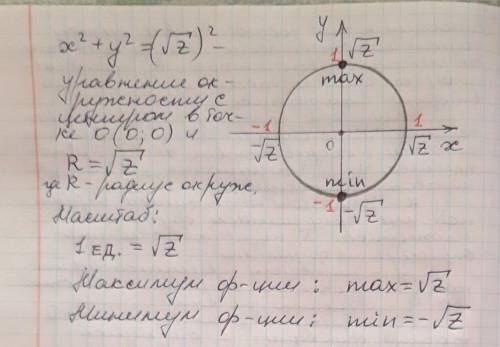 x² + y² = (√z)² –
уравнение ок-
ружности с
центром в точ-
ке O(0; 0) и
R = √z
где R - радиус окруж.
Масштаб:
1 ед. = √z
Максимум ф-ции: max = √z
Минимум ф-ции: min = -√z
y
1 √z
max
-1
-√z
0
1
√z
x
min
-1 -√z